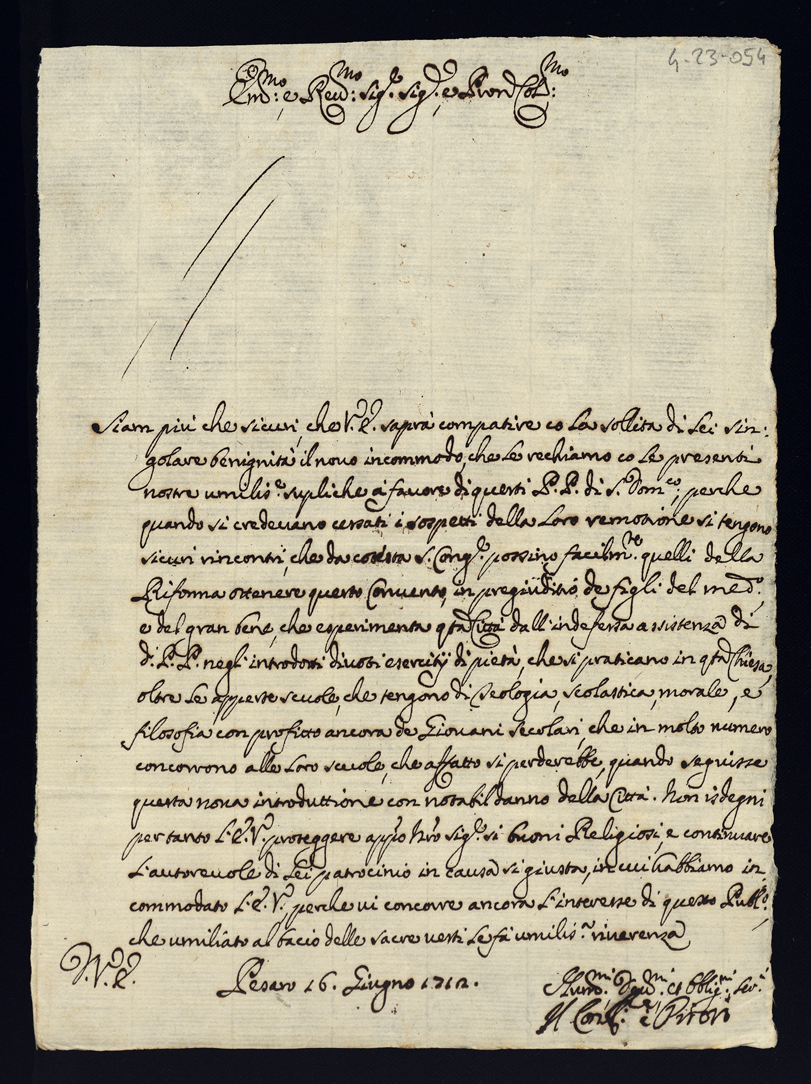 4-23-054
Em̃o: e Reu:mo Sig.r Sig.r, e Pron Col:mo
Siam più che sicuri, che V. E. saprà compatire co la sollita di Lei sin:
golare benignità il novo incommodo, che le rechiamo co le presenti
nostre umilis.e supliche à favore di questi P.P. di S. Dom.co, perche
quando si credevano cessati i sospetti della loro remotione si tengono
sicuri rincontri, che da cotesta S. Cong.e possino facilm.te quelli della
Riforma ottenere questo Convento, in pregiuditio de figli del med.o,
e del gran bene, che esperimenta q̃ta Città dall'indefessa assistenza di
d.i P.P. negl'introdotti divoti esercitij di pietà, che si praticano in q̃ta Chiesa,
oltre le apperte scuole, che tengono di Teologia, scolastica, morale, e
filosofia con profitto ancora de Giovani secolari, che in molto numero
concorrono alle loro scuole, che affatto si perderebbe, quando seguisse
questa nova introduttione con notabil danno della Città. Non isdegni
per tanto l'E. V. proteggere app.o N͠ro Sig.e si buoni Religiosi, e continuare
l'autorevole di Lei patrocinio in causa si giusta, in cui habbiamo in
commodato l'E. V. perche vi concorre ancora l'interesse di questo Publ.o,
che umiliato al bacio delle sacre vesti le fà umilis.a riverenza
D. V. E.
Pesaro 16. Giugno 1712.
Hum.mi Deu.mi et Oblig.mi Ser.i
Il Conf.re e Priori